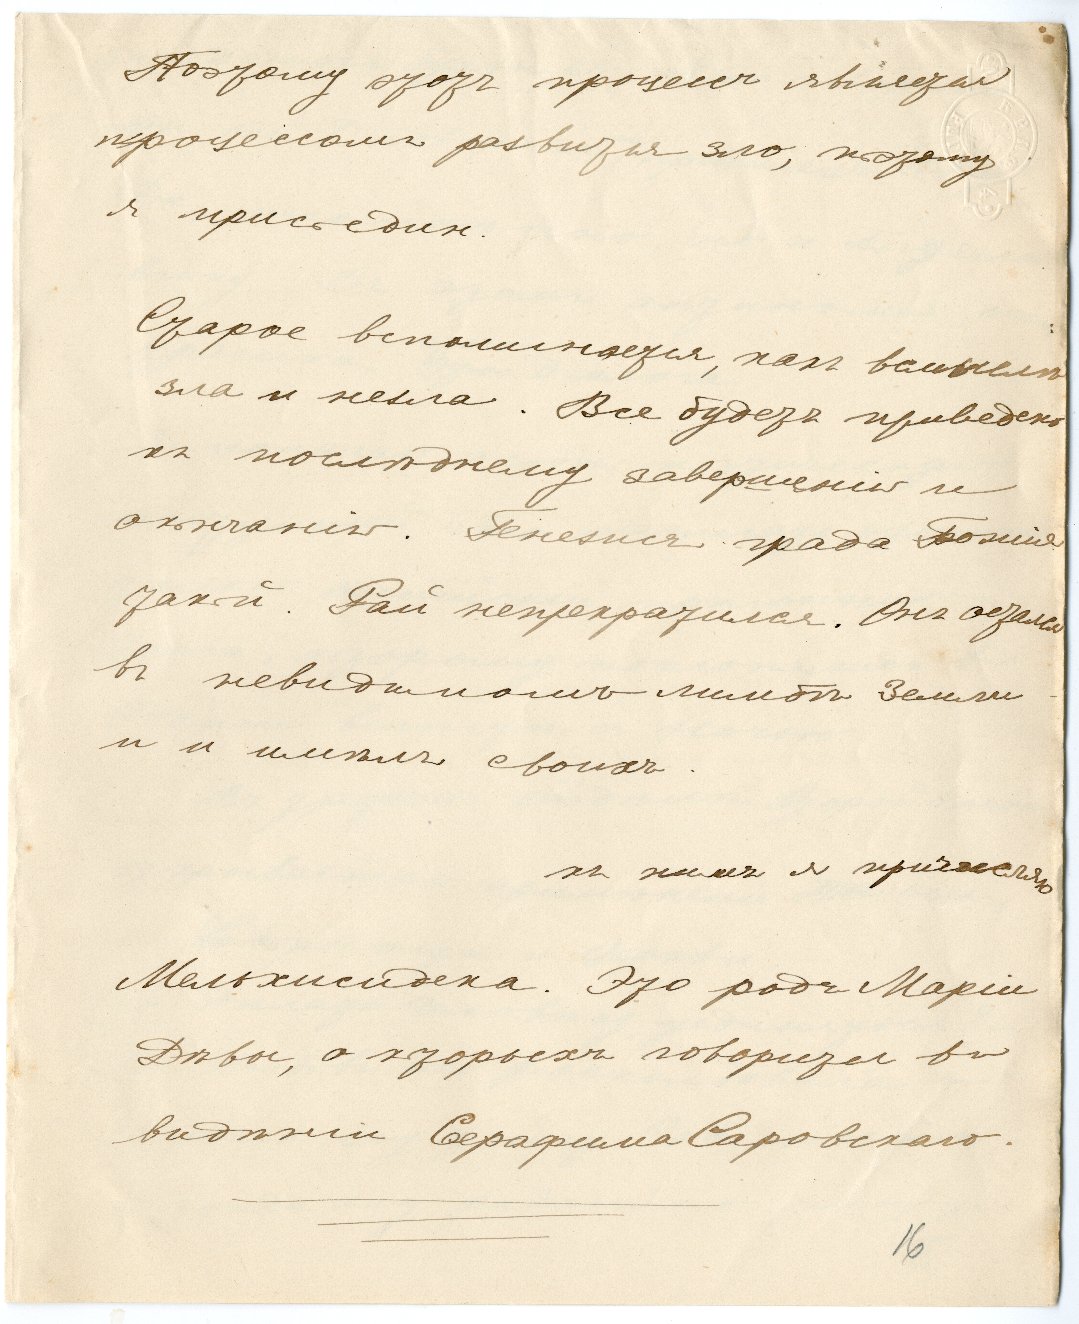 Поэтому этотъ процессъ является
процессомъ развитія зло, поэтому
я присоедин.
Старое вспомнается, какъ
зла и незла. Все будетъ приведено
къ послѣднему завершенію и
окончанію. Генезисъ града Божія
такой. Рай непрекратился. Онъ остался
въ невидимомъ лимбѣ Земли
и и имѣлъ своихъ.
къ нимъ я причисляю
Мельхиседека. Это родъ Маріи
Дѣвы, о которыхъ говорится въ
видѣніи Серафима Саровскаго.
16